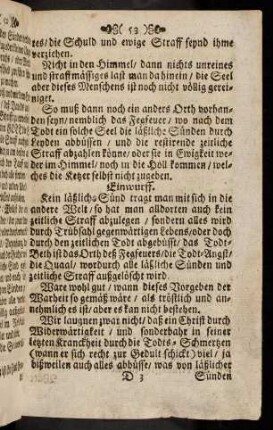 53
tes/ die Schuld und ewige Straff seynd ihme
verziehen.
Nicht in den Himmel/ dann nichts unreines
und straffmässiges last man da hinein/ die Seel
aber dieses Menschens ist noch nicht völlig gerei-
niget.
So muß dann noch ein anders Orth vorhan-
den seyn/ nemblich das Fegfeuer/ wo nach dem
Todt ein solche Seel die läßliche Sünden durch
Leyden abbüssen/ und die restirende zeitliche
Straff abzahlen könne/ oder sie in Ewigkeit we-
der in Himmel/ noch in die Höll kommen/ wel-
ches die Ketzer selbst nicht zugeben.
Einwurff.
Kein läßliche Sünd tragt man mit sich in die
andere Welt/ so hat man alldorten auch kein
zeitliche Straff abzulegen/ sondern alles wird
durch Trübsahl gegenwärtigen Lebens/ oder doch
durch den zeitlichen Todt abgebüsst/ das Todt-
Beth ist das Orth deß Fegfeuers/ die Todt-Angst/
die Quaal/ wordurch alle läßliche Sünden und
zeitliche Straff außgelöscht wird.
Ware wohl gut/ wann dieses Vorgeben der
Warheit so gemäß wäre/ als tröstlich und an-
nehmlich es ist/ aber es kan nicht bestehen.
Wir laugnen zwar nicht/ daß ein Christ durch
Widerwärtigkeit/ und sonderbahr in seiner
letzten Kranckheit durch die Todts-Schmertzen
(wann er sich recht zur Gedult schickt) viel/ ja
bißweilen auch alles abbüsse/ was von läßlicher
D 3 Sünden